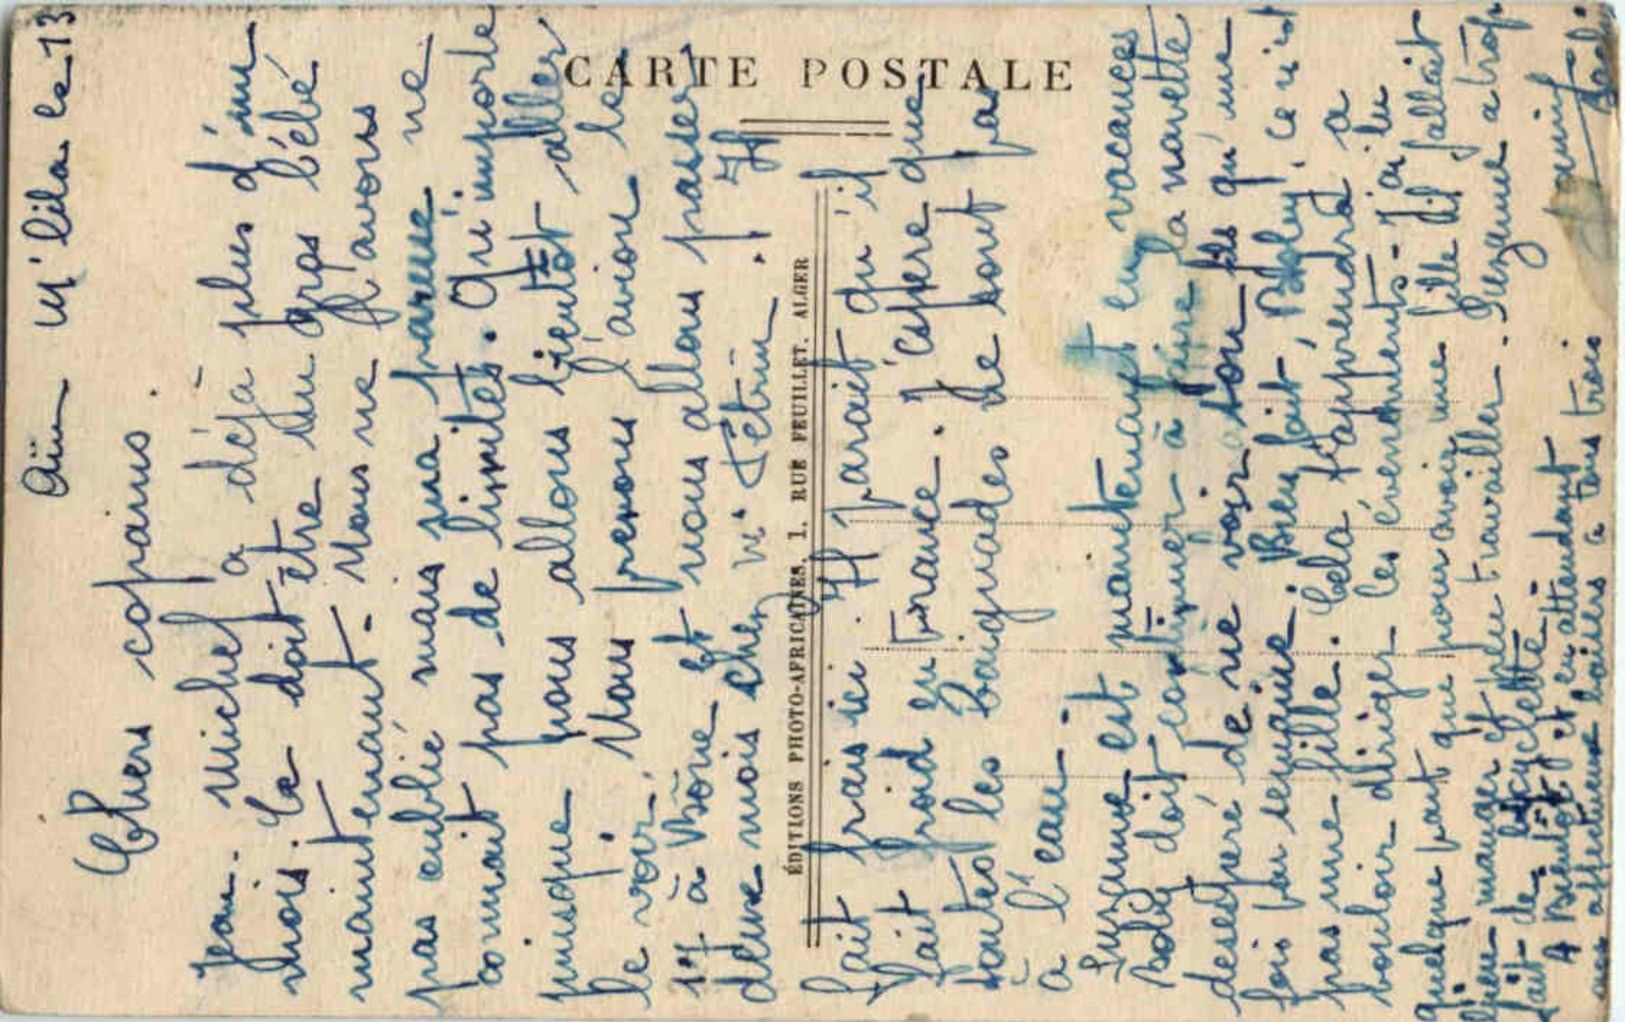 CARTE POSTALE
ÉDITIONS PHOTO-AFRICAINES, 1, RUE FEUILLET. ALGER
Aïn M'lila le 13
Chers copains.
Jean. Michel a déjà plus d'un
mois. Ce doit être un gros bébé
maintenant. Nous ne l'avons
pas oublié mais ma paresse ne
connait pas de limites. Qu'importe
puisque nous allons bientôt aller
le voir. Nous prenons l'avion le
17 à Bône et nous allons passer
deux mois chez Mr Il
fait frais ici. Il parait qu'il
fait froid en France. J'espère que
toutes les baignades ne sont pas
à l'eau.
Suzanne est maintenant en vacances
Boby doit continuer à faire la navette
desespéré de ne voir son fils qu'une
fois par semaine. Bien fait, Boby, ce n'est
pas une fille. Cela t'apprendra à
vouloir diriger les événements - J'ai lu
quelque part que pour avoir une fille il fallait
bien manger et peu travailler. Suzanne a trop
fait de bicyclette.
A Bientôt et en attendant
nos affectueux baisers à tous trois